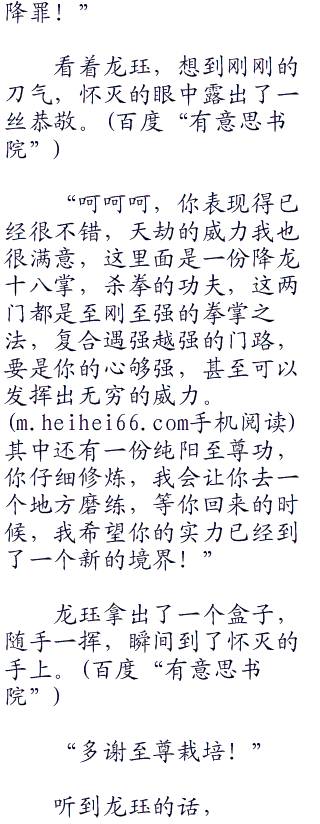 降罪！”
看着龙珏，想到刚刚的
刀气，怀灭的眼中露出了一
丝恭敬。(百度“有意思书
院”)
“呵呵呵，你表现得已
经很不错，天劫的威力我也
很满意，这里面是一份降龙
十八掌，杀拳的功夫，这两
门都是至刚至强的拳掌之
法，复合遇强越强的门路，
要是你的心够强，甚至可以
发挥出无穷的威力。
(m.heihei66.com手机阅读)
其中还有一份纯阳至尊功，
你仔细修炼，我会让你去一
个地方磨练，等你回来的时
候，我希望你的实力已经到
了一个新的境界！”
龙珏拿出了一个盒子，
随手一挥，瞬间到了怀灭的
手上。(百度“有意思书
院”)
“多谢至尊栽培！”
听到龙珏的话，